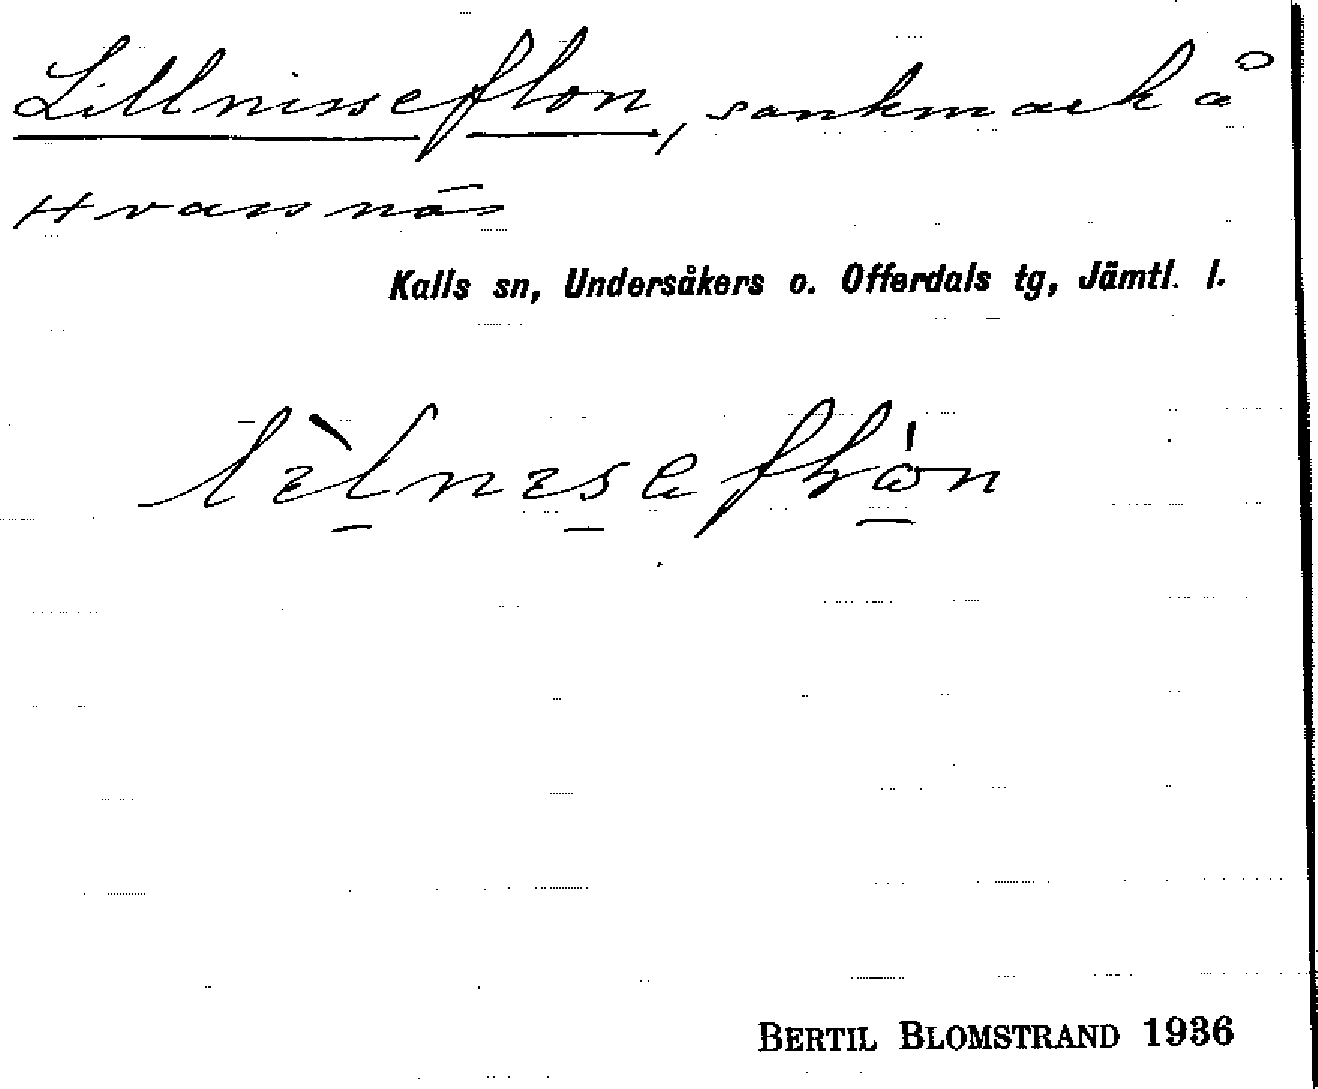 Lillnisseflon, sankmark å
Hvassnäs
Kalls sn, Undersåkers o. Offerdals tg, Jämtl. l.
BERTIL BLOMSTRAND 1936